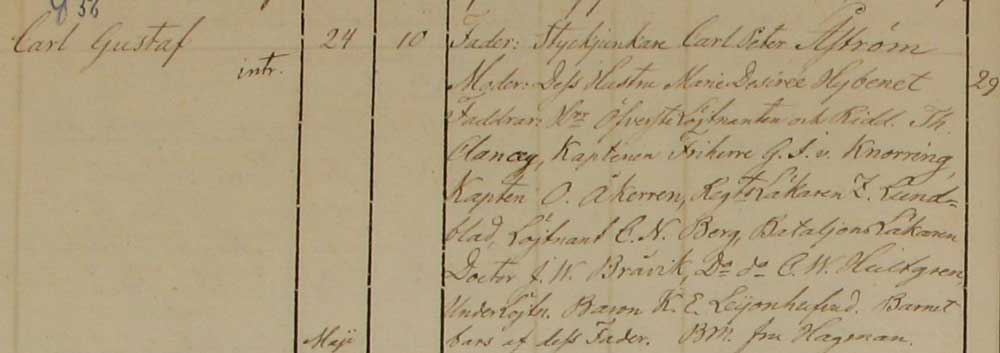 56
Carl Gustaf 24 10 Fader: Styckjunkare Carl Peter Åström
intr. Moder: Dess Hustru Marie Desirée Hybenet 29
Faddrar: Hrr Öfverste Löjtnanten och Ridd. Th.
Clancey, Kaptenen Friherre G. I. v. Knorring,
Kapten O. Åkerren, Regts Läkaren Z. Lund=
blad, Löjtnant C. N. Berg, Bataljons Läkaren
Doctor J. W. Bråvik, Do do C. W. Hultgren,
UnderLöjtn. Baron K. E. Leijonhufvud. Barnet
Maji bars af dess Fader. BM. fru Hagman.